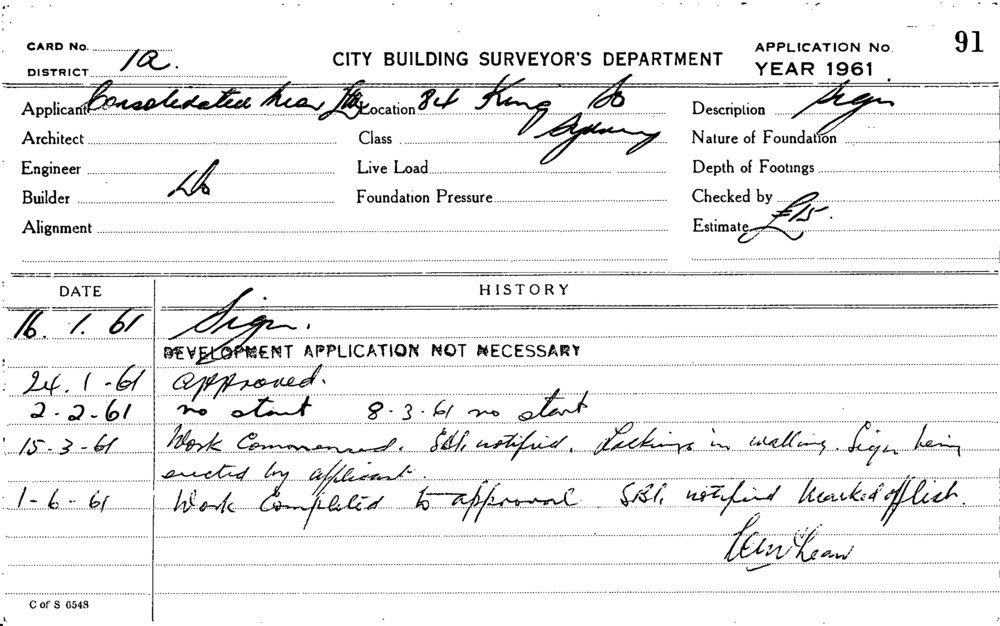 CARD No. CITY BUILDING SURVEYOR'S DEPARTMENT APPLICATION No. 91
DISTRICT 1a. YEAR 1961
Applicant Consolidated Neon Location 84 King St Description Sign
Architect Class Sydney Nature of Foundation
Engineer Live Load Depth of Footings
Builder Do Foundation Pressure Checked by
Alignment Estimate £15.
DATE HISTORY
16. 1. 61 Sign.
DEVELOPMENT APPLICATION NOT NECESSARY
24. 1 -61 approved.
2-2-61 no start 8-3-61 no start
15-3-61 Work Commenced. notified. in walling. Sign being
erected by applicant.
1-6-61 Work Completed to approval notified Marked off list.
C of S 6548